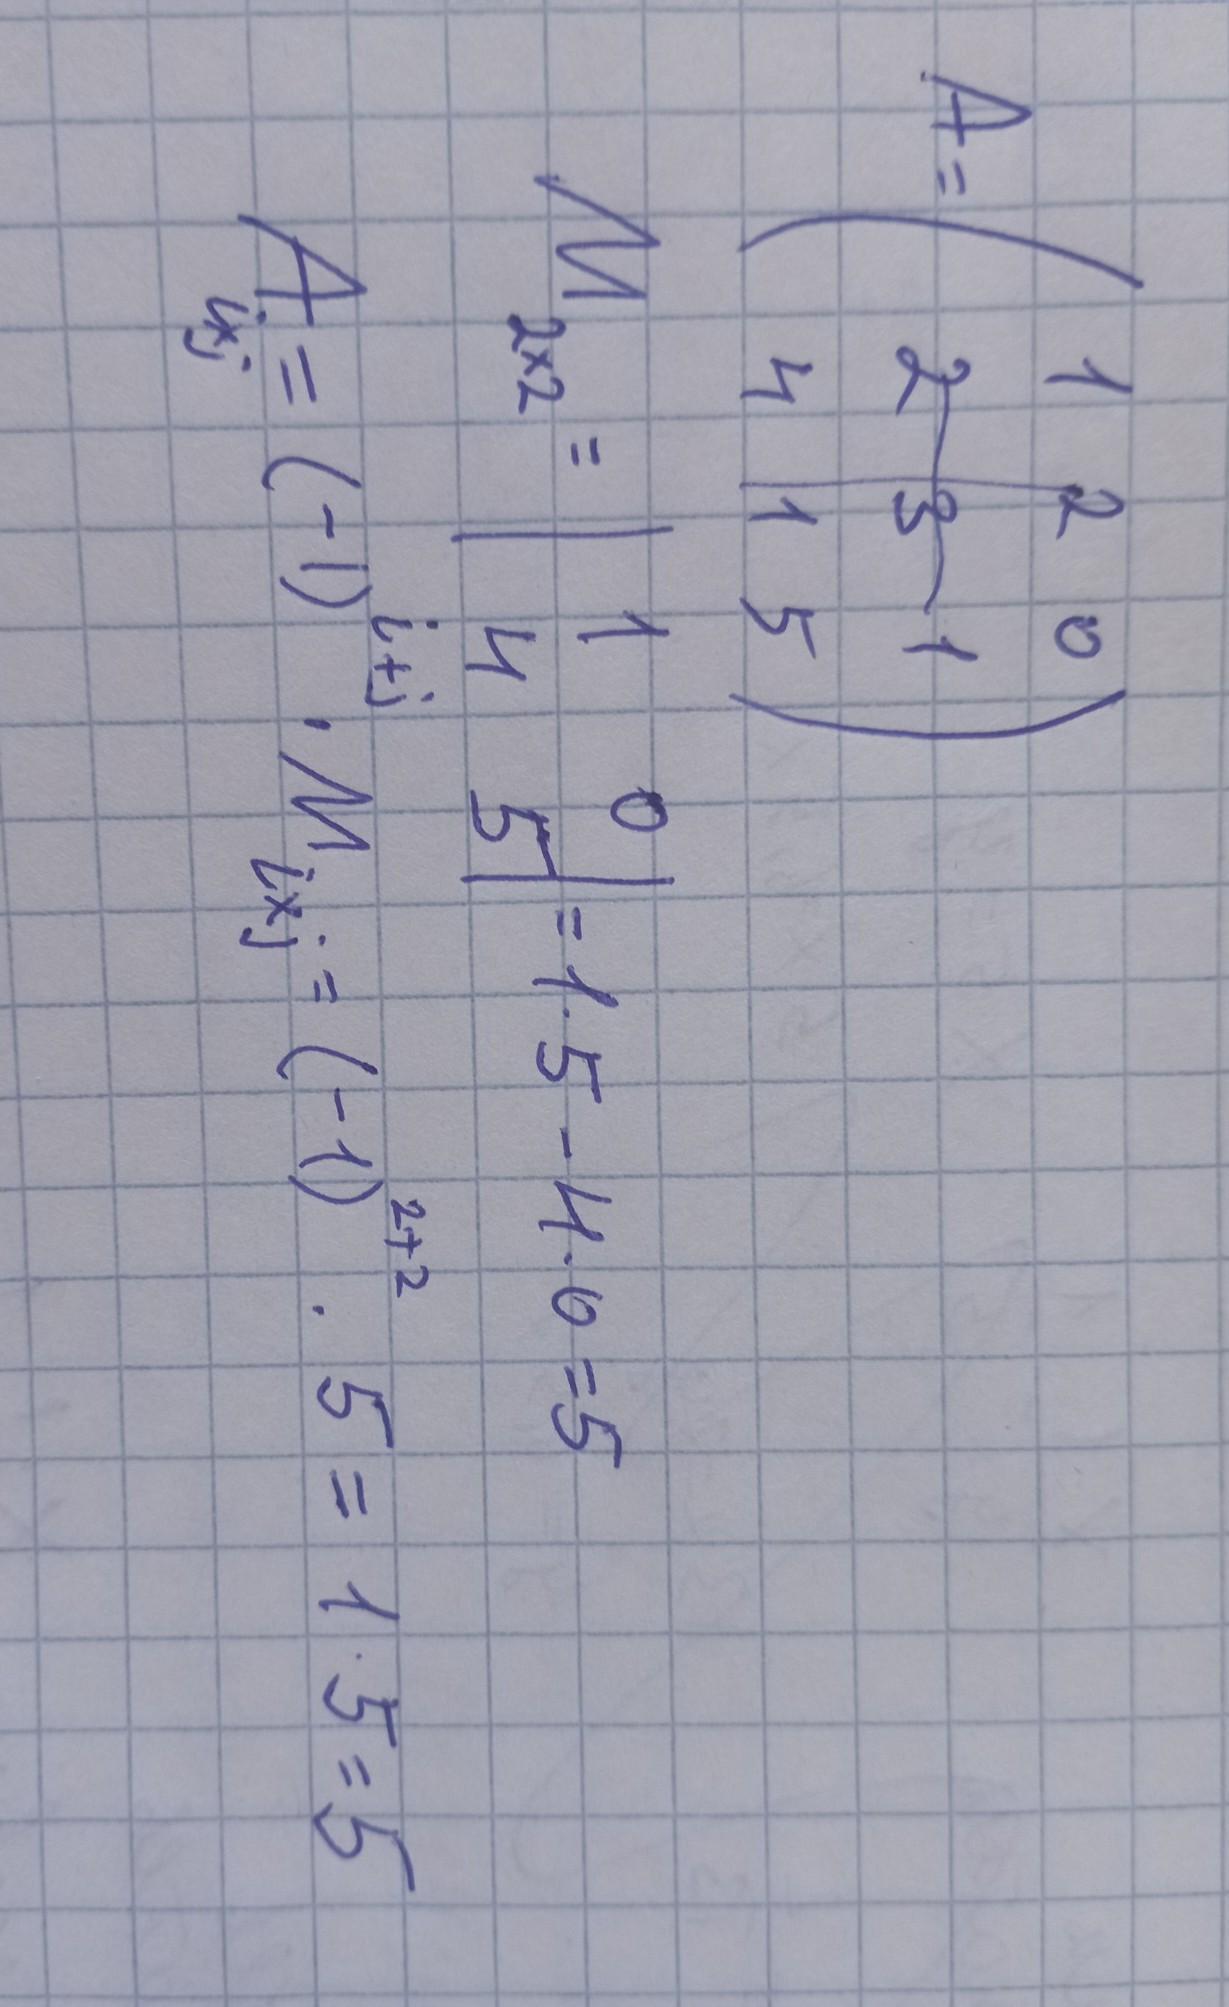 A = ( 1 2 0
2 3 1
4 1 5 )
M₂ₓ₂ = | 1 0
4 5 | = 1 · 5 - 4 · 0 = 5
Aᵢₓⱼ = (-1)ⁱ⁺ʲ · Mᵢₓⱼ = (-1)²⁺² · 5 = 1 · 5 = 5